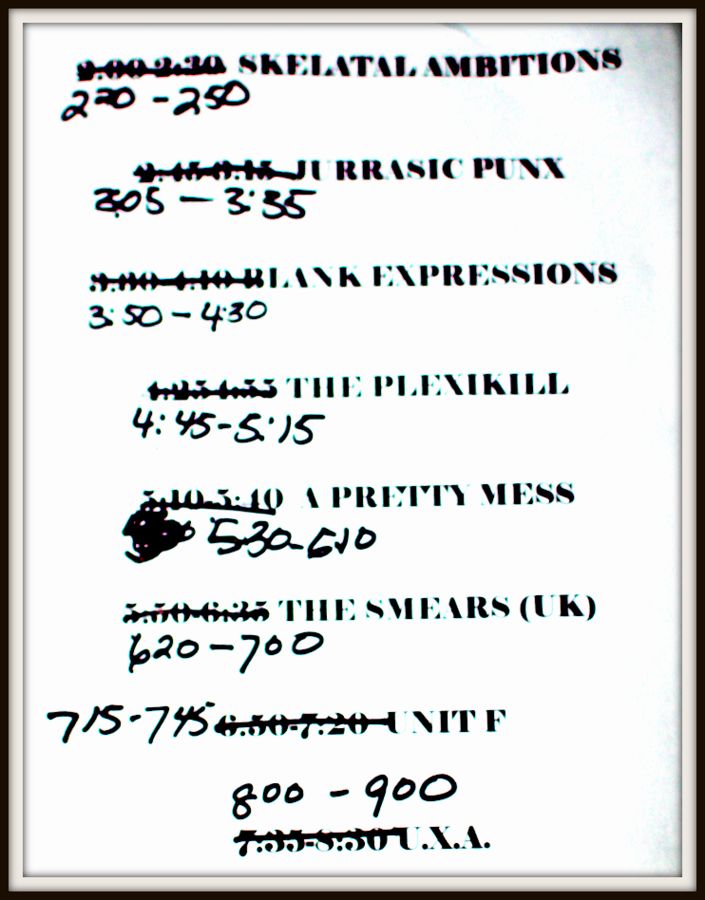 2.00-2.30 SKELATAL AMBITIONS
220 - 250
2.45-3.15 JURRASIC PUNX
305 - 3:35
3.30-4.10 BLANK EXPRESSIONS
3:50 - 4:30
4.25-4.55 THE PLEXIKILL
4:45-5:15
5.10-5:40 A PRETTY MESS
530-610
5.50-6.35 THE SMEARS (UK)
620-700
715-745 6.50-7.20 UNIT F
800 - 900
7.35-8.30 U.X.A.